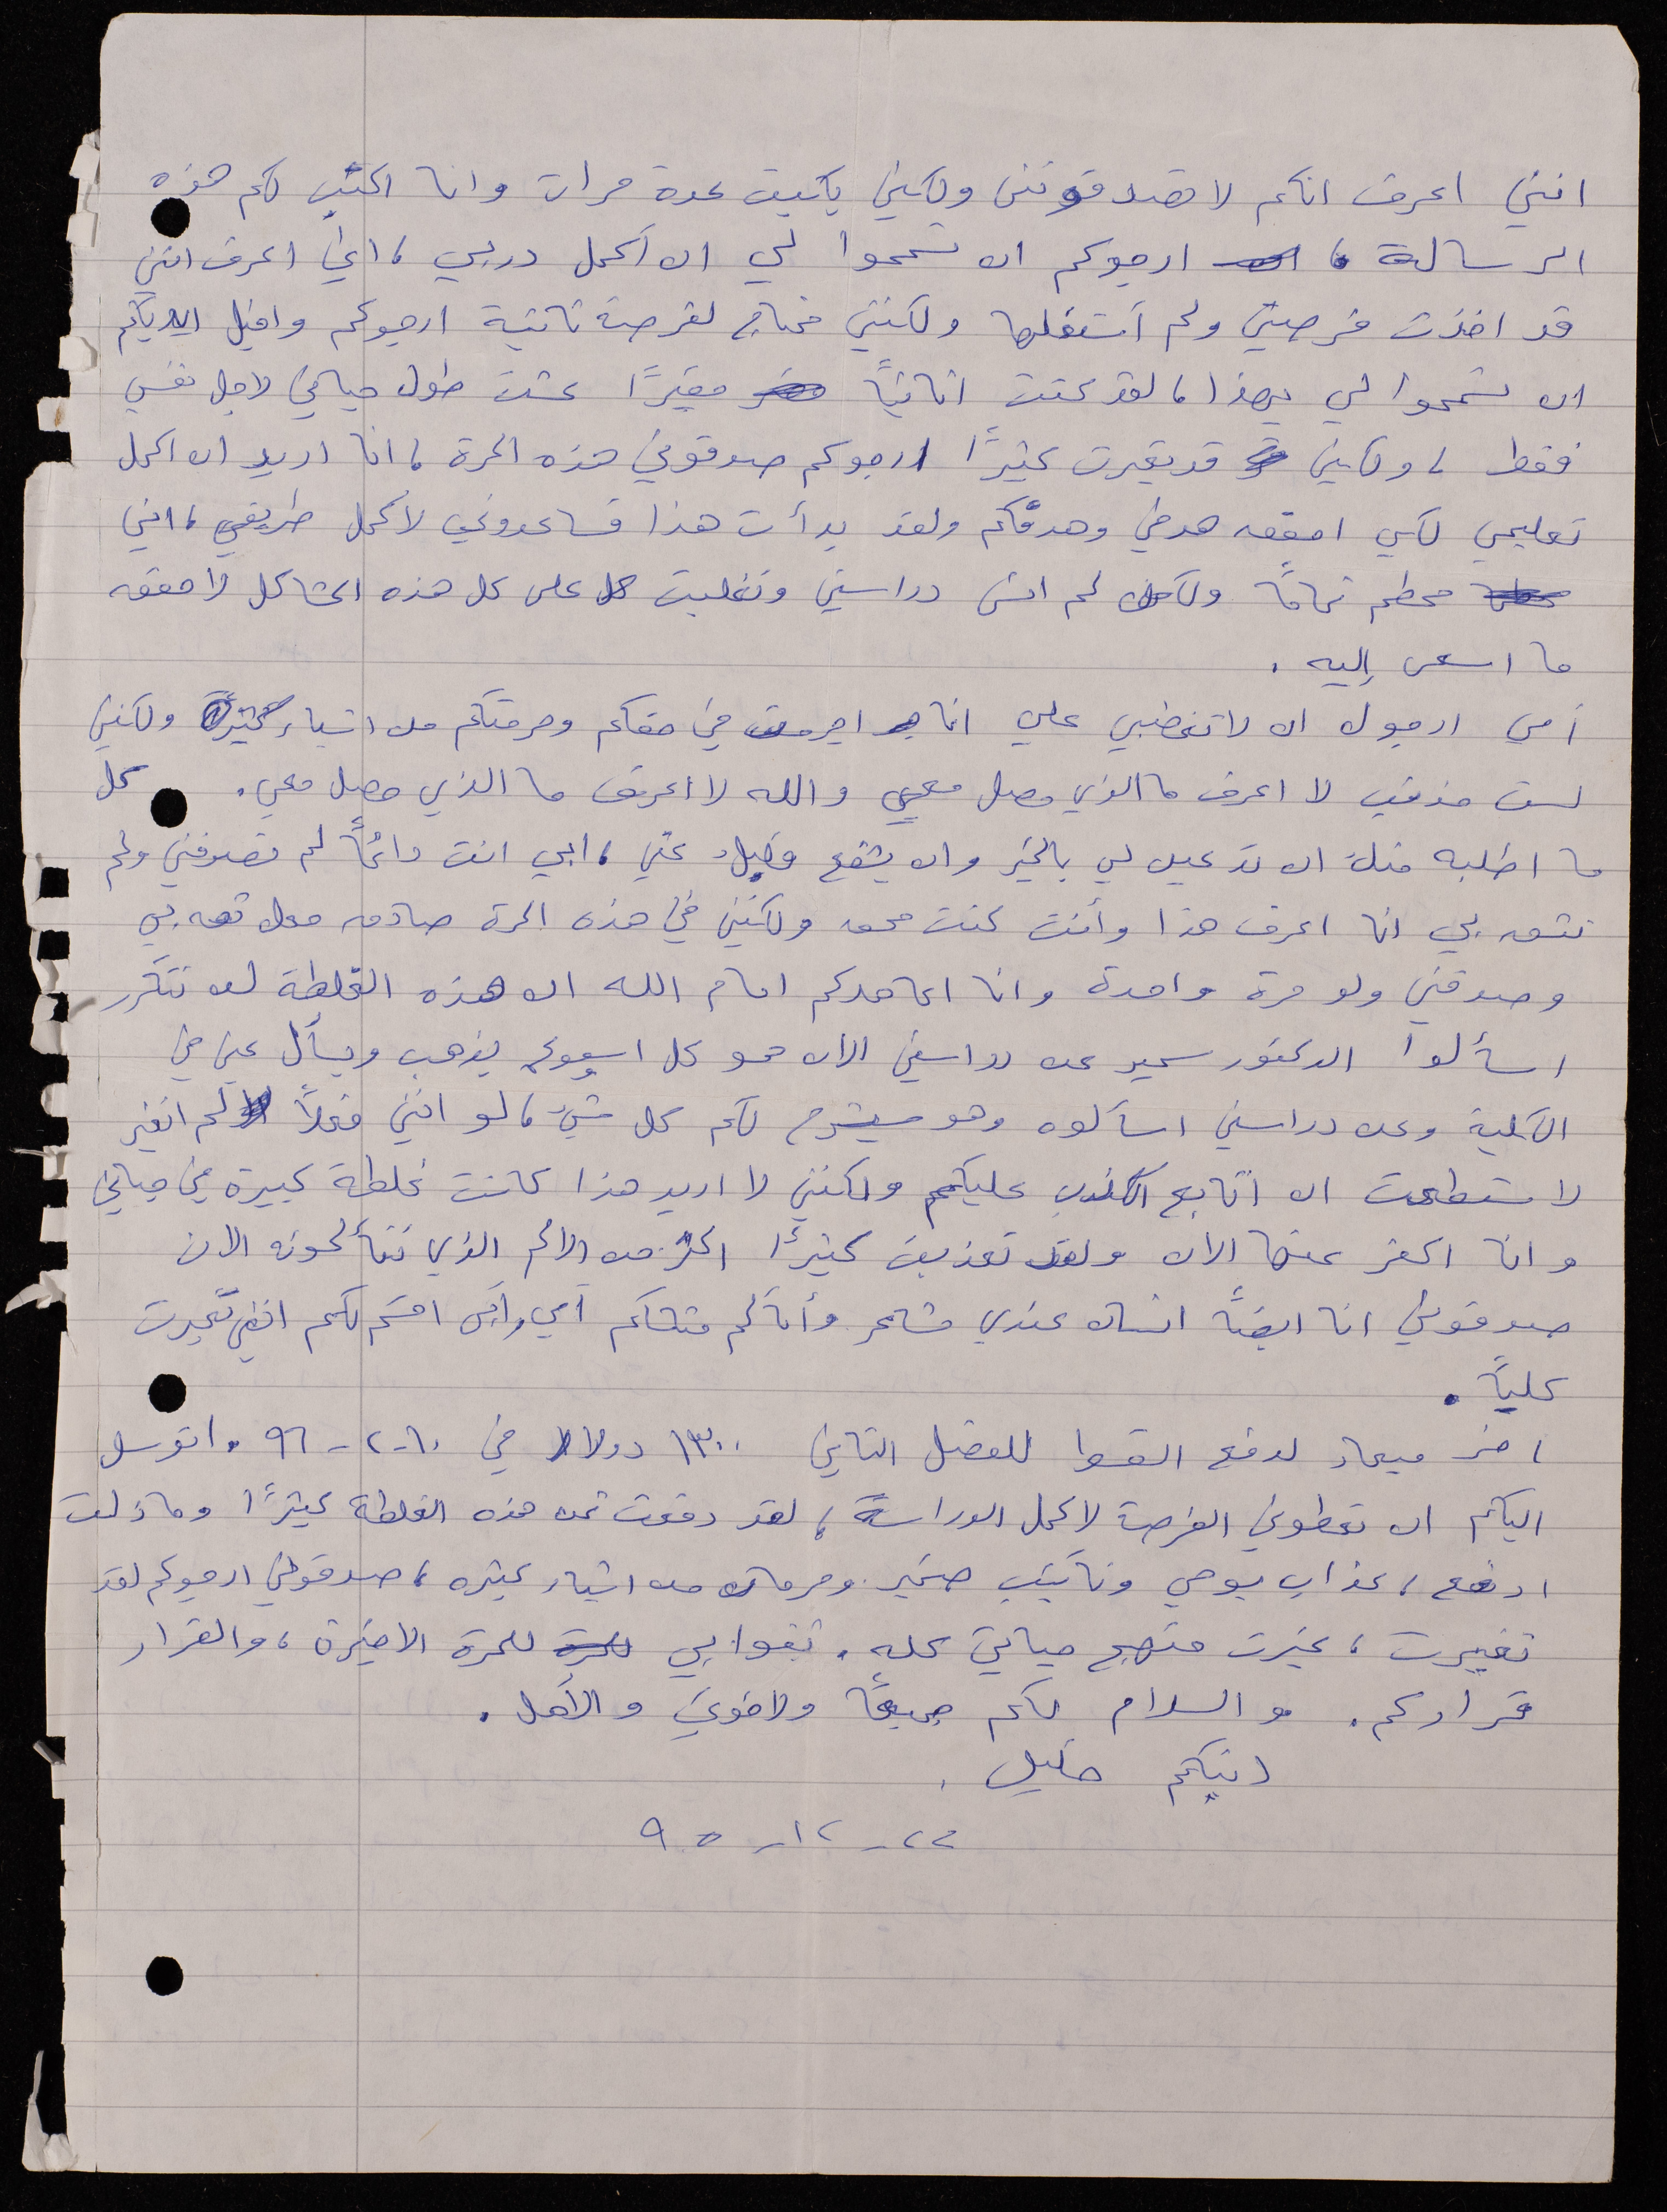 انني اعرف انكم لا تصدقونني ولكني بكيت عدة مرات وانا اكتب لكم هذه
الرسالة ، ارجوكم ان تسمحوا لي ان أكمل دربي ، اني اعرف انني
قد اخذت فرصتي ولم أستغلها ولكنني محتاج لفرصة ثانية ارجوكم واقبل ايديكم
ان تسمحوا لي بهذا ، لقد كنت انانيًا عشت طول حياتي لاجل نفسي
فقط ، ولكني قد تغيرت كثيرًا ارجوكم صدقوني هذه المرة ، انا اريد ان اكمل
تعليمي لكي احقق هدفي وهدفكم ولقد بدأت هذا فساعدوني لاكمل طريقي ، انني
محطم تمامًا ولكن لم انس دراستي وتغلبت على كل هذه المشاكل لاحقق
ما اسعى إليه .
أمي ارجوك ان لا تغضبي علي انا اجرمت في حقكم وحرمتكم من اشياء كثيرة ولكنني
لست مذنب لا اعرف ما الذي حصل معي والله لا اعرف ما الذي حصل معي . كل
ما اطلبه منك ان تدعين لي بالخير وان يشفع عني ، ابي انت دائمًا لم تصدقني ولم
تثق بي انا اعرف هذا وأنت كنت محق ولكنني في هذه المرة صادق ثق بي
وصدقني ولو مرة واحدة وانا اعاهدكم امام الله ان هذه الغلطة لن تتكرر
اسألوا الدكتور سمير عن دراستي الان هو كل اسبوع يذهب ويسأل عني في
الكلية وعن دراستي اسألوه وهو سيشرح لكم كل شيء ، لو انني فعلاً لم اتغير
لاستطعت ان اتابع الكذب عليكم ولكنني لا اريد هذا كانت غلطة كبيرة في حياتي
وانا اكفر عنها الان ولقد تعذبت كثيرًا اكثر من الالم الذي تتألمونه الان
صدقوني انا ايضًا انسان عندي مشاعر وأتألم مثلكم أمي وأبي اقسم لكم انني تغيرت
كليًا .
اخر ميعاد لدفع القسط للفصل الثاني ١٣٠٠ دولار في ١٠-٢-٩٦ . اتوسل
اليكم ان تعطوني الفرصة لاكمل الدراسة ، لقد دفعت ثمن هذه الغلطة كثيرًا وما زلت
ادفع ، عذاب يومي وتأنيب ضمير وحرمان من اشياء كثيره ، صدقوني ارجوكم لقد
تغيرت ، غيرت منهج حياتي كله . ثقوا بي للمرة الاخيرة ، والقرار
قراركم . والسلام لكم جميعًا ولاخوتي والأهل .
ابنكم خليل .
٢٢-١٢-٩٥